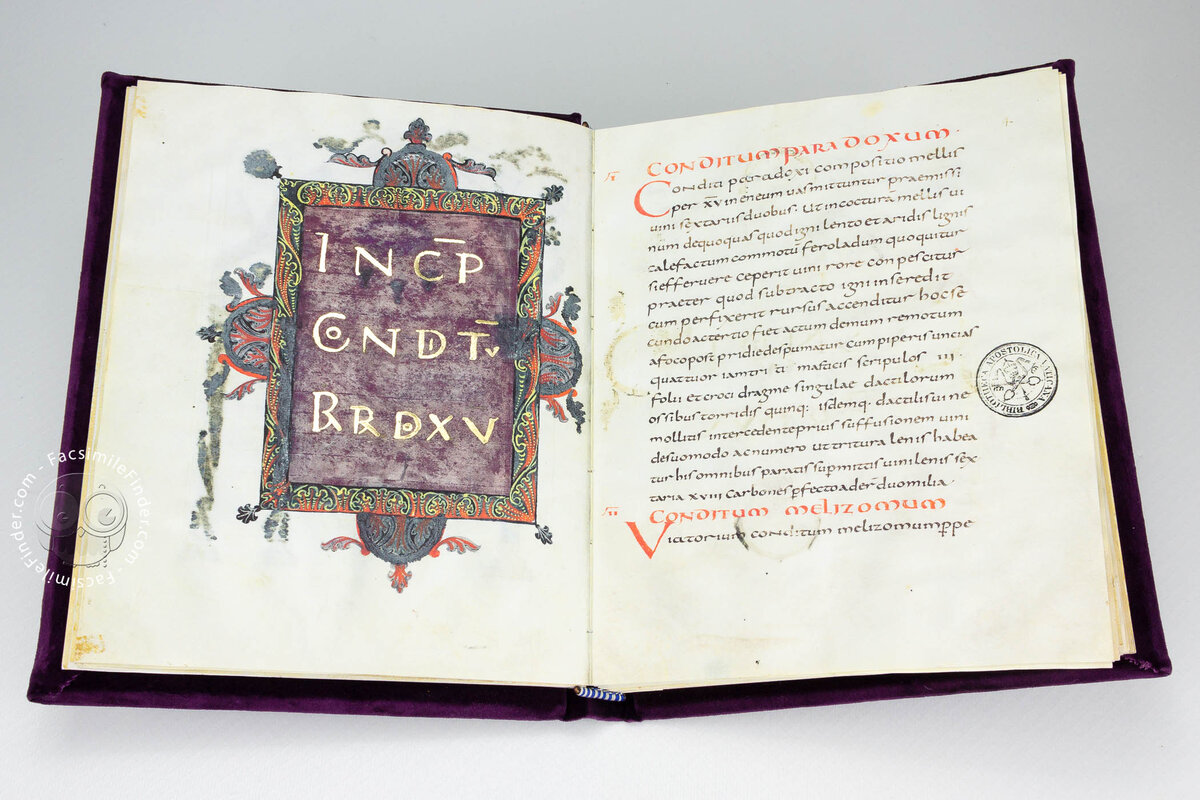 INCP
CONDIT
BRDXV
CONDITUM PARADOXUM
Conditi paradoxi compositio mellis
per XV in eneum vas mittuntur praemissi
vini sextariis duobus. Ut in coctura mellis vi
num dequoquas quod igni lento et aridis lignis
calefactum commotu ferola dum quoquitur
si effervere ceperit vini rore conpescitur
praeter quod subtracto igni in se redit
cum perfixerit rursus accenditur hoc se
cundo ac tertio fiet ac tum demum remotum
a foco post pridie despumatur cum piperis uncias
quattuor iam triti masticis scripulos III
folii et croci dragme singulae dactilorum
ossibus torridis quinq; isdemq. dactilis vine
mollitis intercedente prius suffusionem vini
de suo modo ac numero ut tritura lenis habea
tur his omnibus paratis supmittis vini lenis sex
taria XVIII carbones pfecto ader duo milia.
II CONDITUM MELIZOMUM
Viatorium conditum melizomum pppe
BIBLIOTHECA APOSTOLICA VATICANA
FacsimileFinder.com - FacsimileFinder.com